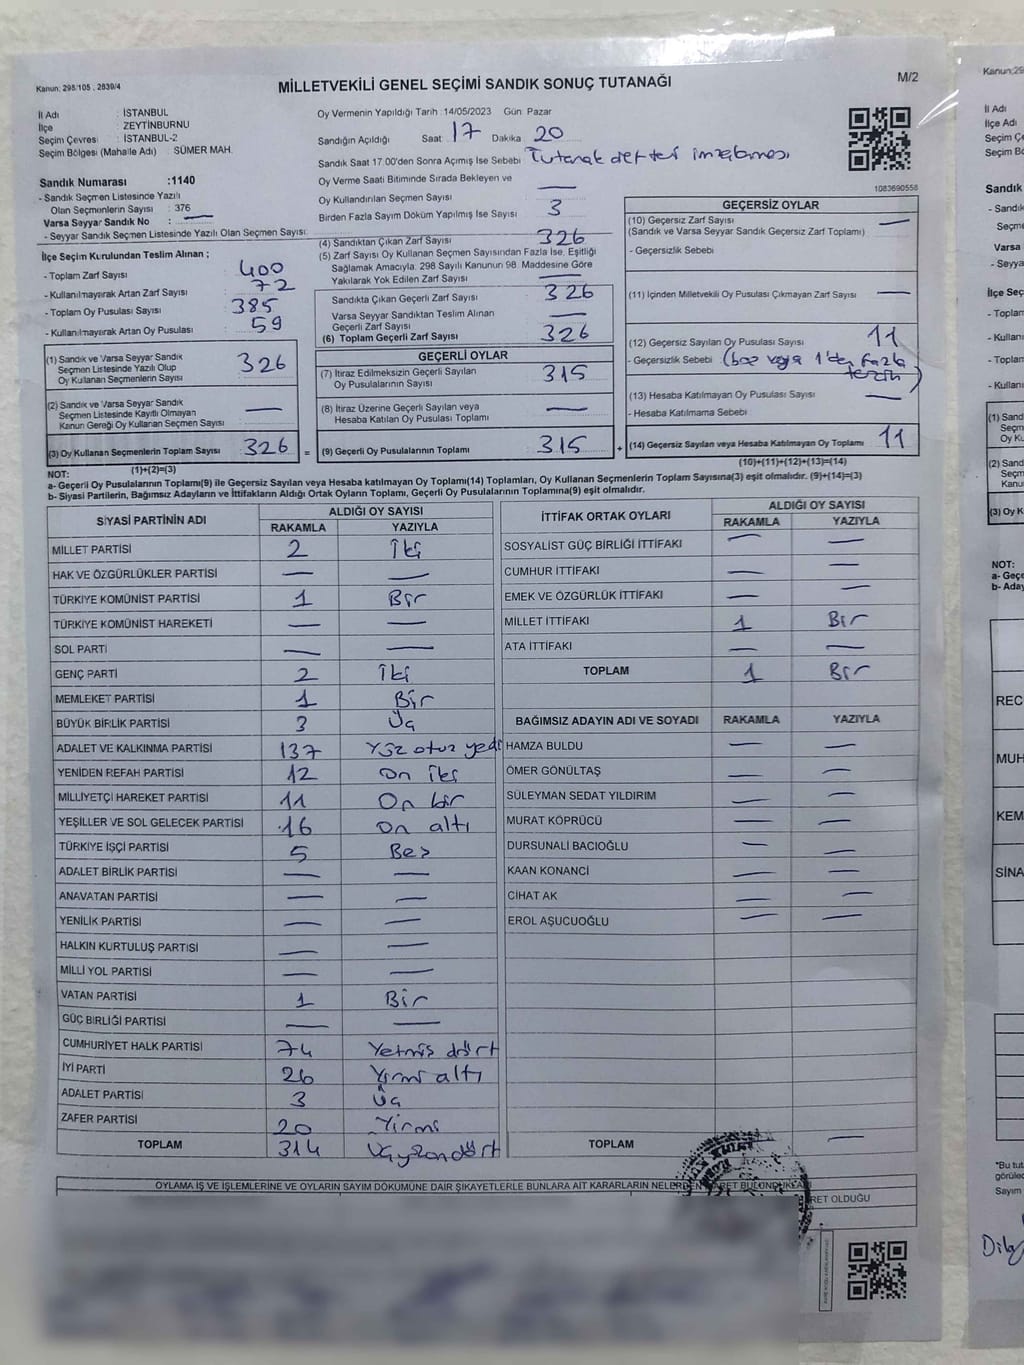 Kanun; 298/105 , 2839/4
MİLLETVEKİLİ GENEL SEÇİMİ SANDIK SONUÇ TUTANAĞI
M/2
İl Adı : İSTANBUL
İlçe : ZEYTİNBURNU
Seçim Çevresi : İSTANBUL-2
Seçim Bölgesi (Mahalle Adı) : SÜMER MAH.
Sandık Numarası :1140
- Sandık Seçmen Listesinde Yazılı
Olan Seçmenlerin Sayısı : 376
Varsa Seyyar Sandık No : —
- Seyyar Sandık Seçmen Listesinde Yazılı Olan Seçmen Sayısı:
Oy Vermenin Yapıldığı Tarih :14/05/2023 Gün: Pazar
Sandığın Açıldığı Saat: 17 Dakika: 20
Sandık Saat 17.00'den Sonra Açımış İse Sebebi Tutanak defteri imzalaması
Oy Verme Saati Bitiminde Sırada Bekleyen ve
Oy Kullandırılan Seçmen Sayısı —
Birden Fazla Sayım Döküm Yapılmış İse Sayısı 3
1083690558
İlçe Seçim Kurulundan Teslim Alınan ;
- Toplam Zarf Sayısı 400
- Kullanılmayarak Artan Zarf Sayısı 72
- Toplam Oy Pusulası Sayısı 385
- Kullanılmayarak Artan Oy Pusulası 59
(1) Sandık ve Varsa Seyyar Sandık
Seçmen Listesinde Yazılı Olup
Oy Kullanan Seçmenlerin Sayısı 326
(2) Sandık ve Varsa Seyyar Sandık
Seçmen Listesinde Kayıtlı Olmayan
Kanun Gereği Oy Kullanan Seçmen Sayısı —
(3) Oy Kullanan Seçmenlerin Toplam Sayısı 326 =
(1)+(2)=(3)
(4) Sandıktan Çıkan Zarf Sayısı 326
(5) Zarf Sayısı Oy Kullanan Seçmen Sayısından Fazla İse, Eşitliği
Sağlamak Amacıyla, 298 Sayılı Kanunun 98. Maddesine Göre
Yakılarak Yok Edilen Zarf Sayısı —
Sandıkta Çıkan Geçerli Zarf Sayısı 326
Varsa Seyyar Sandıktan Teslim Alınan
Geçerli Zarf Sayısı —
(6) Toplam Geçerli Zarf Sayısı 326
GEÇERLİ OYLAR
(7) İtiraz Edilmeksizin Geçerli Sayılan
Oy Pusulalarının Sayısı 315
(8) İtiraz Üzerine Geçerli Sayılan veya
Hesaba Katılan Oy Pusulası Toplamı —
(9) Geçerli Oy Pusulalarının Toplamı 315 +
GEÇERSİZ OYLAR
(10) Geçersiz Zarf Sayısı —
(Sandık ve Varsa Seyyar Sandık Geçersiz Zarf Toplamı)
- Geçersizlik Sebebi
(11) İçinden Milletvekili Oy Pusulası Çıkmayan Zarf Sayısı —
(12) Geçersiz Sayılan Oy Pusulası Sayısı 11
- Geçersizlik Sebebi (boş veya 1'den fazla
tercih)
(13) Hesaba Katılmayan Oy Pusulası Sayısı —
- Hesaba Katılmama Sebebi
(14) Geçersiz Sayılan veya Hesaba Katılmayan Oy Toplamı 11
(10)+(11)+(12)+(13)=(14)
NOT:
a- Geçerli Oy Pusulalarının Toplamı(9) ile Geçersiz Sayılan veya Hesaba katılmayan Oy Toplamı(14) Toplamları, Oy Kullanan Seçmenlerin Toplam Sayısına(3) eşit olmalıdır. (9)+(14)=(3)
b- Siyasi Partilerin, Bağımsız Adayların ve İttifakların Aldığı Ortak Oyların Toplamı, Geçerli Oy Pusulalarının Toplamına(9) eşit olmalıdır.
SİYASİ PARTİNİN ADI ALDIĞI OY SAYISI
RAKAMLA YAZIYLA
MİLLET PARTİSİ 2 İki
HAK VE ÖZGÜRLÜKLER PARTİSİ — —
TÜRKİYE KOMÜNİST PARTİSİ 1 Bir
TÜRKİYE KOMÜNİST HAREKETİ — —
SOL PARTİ — —
GENÇ PARTİ 2 İki
MEMLEKET PARTİSİ 1 Bir
BÜYÜK BİRLİK PARTİSİ 3 Üç
ADALET VE KALKINMA PARTİSİ 137 Yüz otuz yedi
YENİDEN REFAH PARTİSİ 12 On iki
MİLLİYETÇİ HAREKET PARTİSİ 11 On bir
YEŞİLLER VE SOL GELECEK PARTİSİ 16 On altı
TÜRKİYE İŞÇİ PARTİSİ 5 Beş
ADALET BİRLİK PARTİSİ — —
ANAVATAN PARTİSİ — —
YENİLİK PARTİSİ — —
HALKIN KURTULUŞ PARTİSİ — —
MİLLİ YOL PARTİSİ — —
VATAN PARTİSİ 1 Bir
GÜÇ BİRLİĞİ PARTİSİ — —
CUMHURİYET HALK PARTİSİ 74 Yetmiş dört
İYİ PARTİ 26 Yirmi altı
ADALET PARTİSİ 3 Üç
ZAFER PARTİSİ 20 Yirmi
TOPLAM 314 Üçyüzondört
İTTİFAK ORTAK OYLARI ALDIĞI OY SAYISI
RAKAMLA YAZIYLA
SOSYALİST GÜÇ BİRLİĞİ İTTİFAKI — —
CUMHUR İTTİFAKI — —
EMEK VE ÖZGÜRLÜK İTTİFAKI — —
MİLLET İTTİFAKI 1 Bir
ATA İTTİFAKI — —
TOPLAM 1 Bir
BAĞIMSIZ ADAYIN ADI VE SOYADI RAKAMLA YAZIYLA
HAMZA BULDU — —
ÖMER GÖNÜLTAŞ — —
SÜLEYMAN SEDAT YILDIRIM — —
MURAT KÖPRÜCÜ — —
DURSUNALİ BACIOĞLU — —
KAAN KONANCİ — —
CİHAT AK — —
EROL AŞUCUOĞLU — —
TOPLAM —
OYLAMA İŞ VE İŞLEMLERİNE VE OYLARIN SAYIM DÖKÜMÜNE DAİR ŞİKAYETLERLE BUNLARA AİT KARARLARIN NELERDEN
RET OLDUĞU
Kanun;29
İl Adı
İlçe Adı
Seçim Ç
Seçim B
Sandık
- Sandı
Seçme
Varsa
- Seyya
İlçe Seç
- Toplam
- Kullanı
- Topla
- Kullanı
(1) Sand
Seçm
Oy Ku
(2) Sand
Seçm
Kanu
(3) Oy K
NOT:
a- Geçe
b- Aday
REC
MUH
KEM
SİNA
"Bu tut
görülec
Sayım